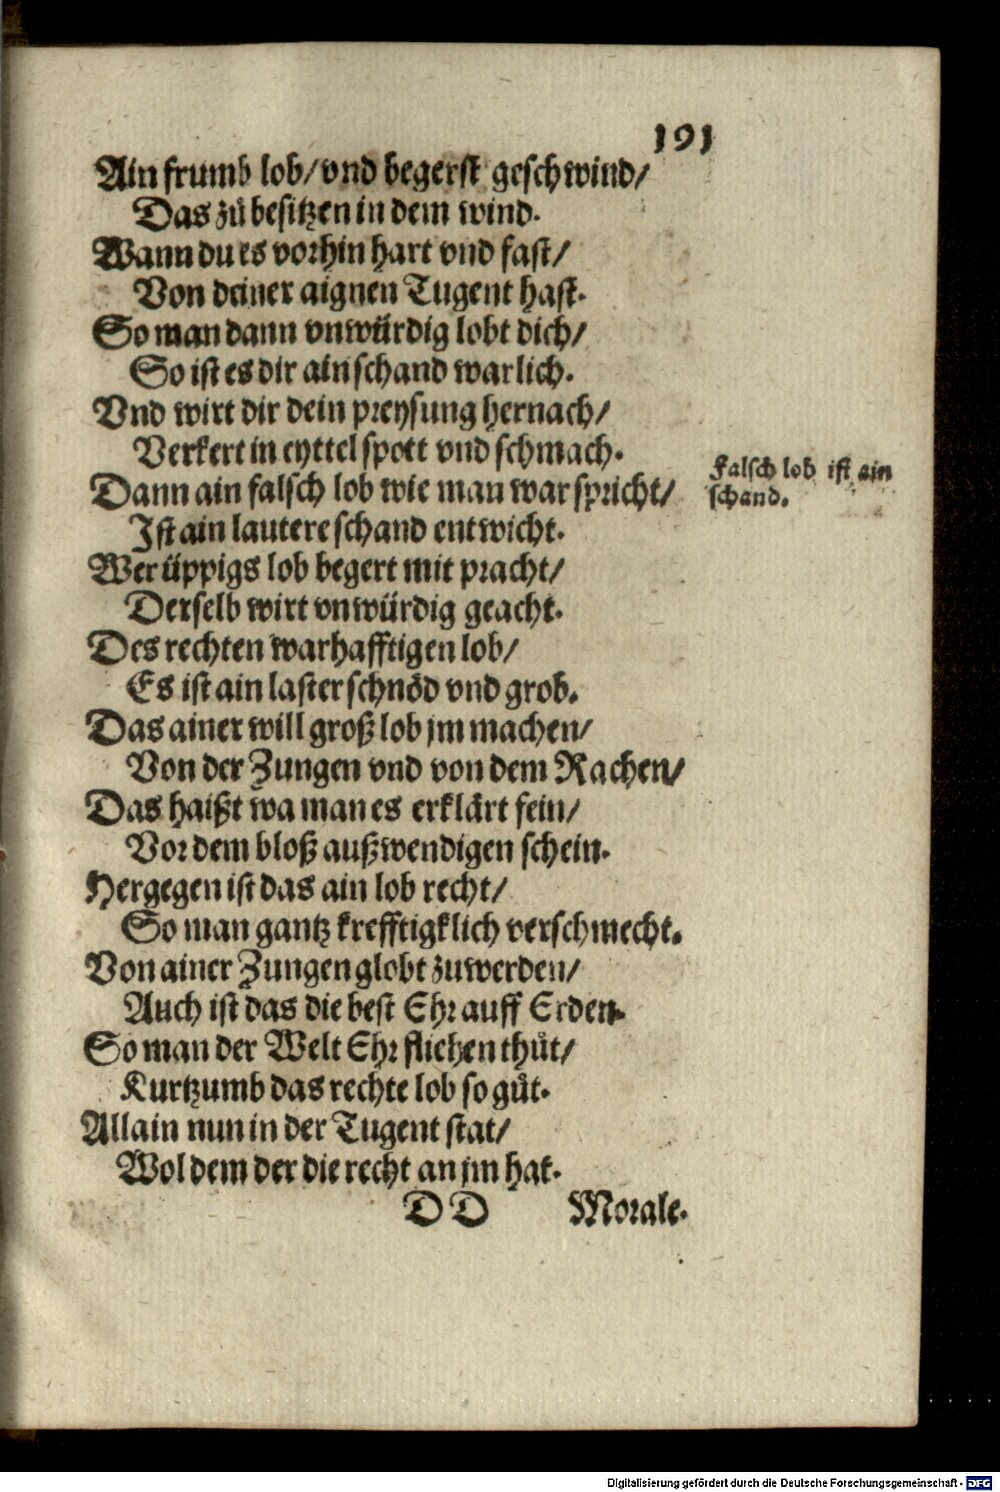 191
Ain frumb lob/ vnd begerst geschwind/
Das zů besitzen in dem wind.
Wann du es vorhin hart vnd fast/
Von deiner aignen Tugent hast.
So man dann vnwürdig lobt dich/
So ist es dir ain schand warlich.
Vnd wirt dir dein preysung hernach/
Verkert in eyttel spott vnd schmach.
Dann ain falsch lob wie man war spricht/
Falsch lob ist ain
schand.
Ist ain lautere schand entwicht.
Wer üppigs lob begert mit pracht/
Derselb wirt vnwürdig geacht.
Des rechten warhafftigen lob/
Es ist ain laster schnöd vnd grob.
Das ainer will groß lob jm machen/
Von der Zungen vnd von dem Rachen/
Das haißt wa man es erklärt fein/
Vor dem bloß außwendigen schein.
Hergegen ist das ain lob recht/
So man gantz krefftigklich verschmecht.
Von ainer Zungen globt zuwerden/
Auch ist das die best Ehr auff Erden.
So man der Welt Ehr fliehen thůt/
Kurtzumb das rechte lob so gůt.
Allain nun in der Tugent stat/
Wol dem der die recht an jm hat.
DD Morale.
Digitalisierung gefördert durch die Deutsche Forschungsgemeinschaft - DFG